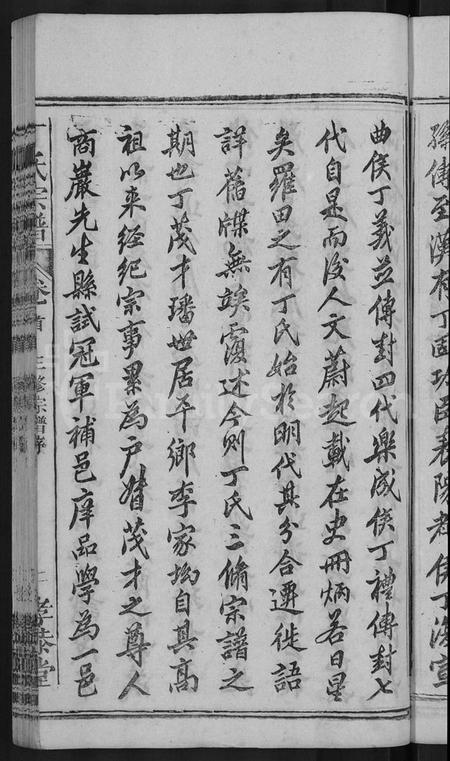 孫傳至漢有丁固功臣表陽者侯丁復宣
曲侯丁義並傳封四代樂成侯丁禮傳封七
代自是而後人文蔚起載在史冊炳若日星
矣羅田之有丁氏始於明代其分合遷徙語
詳舊牒無俟覆述今則丁氏三脩宗譜之
期也丁茂才璠世居平鄉李家坳自其高
祖以來經紀宗事累為户督茂才之尊人
商巖先生縣試冠軍補邑庠品學為一邑
氏宗譜
卷首 三修宗譜序
FamilySearch